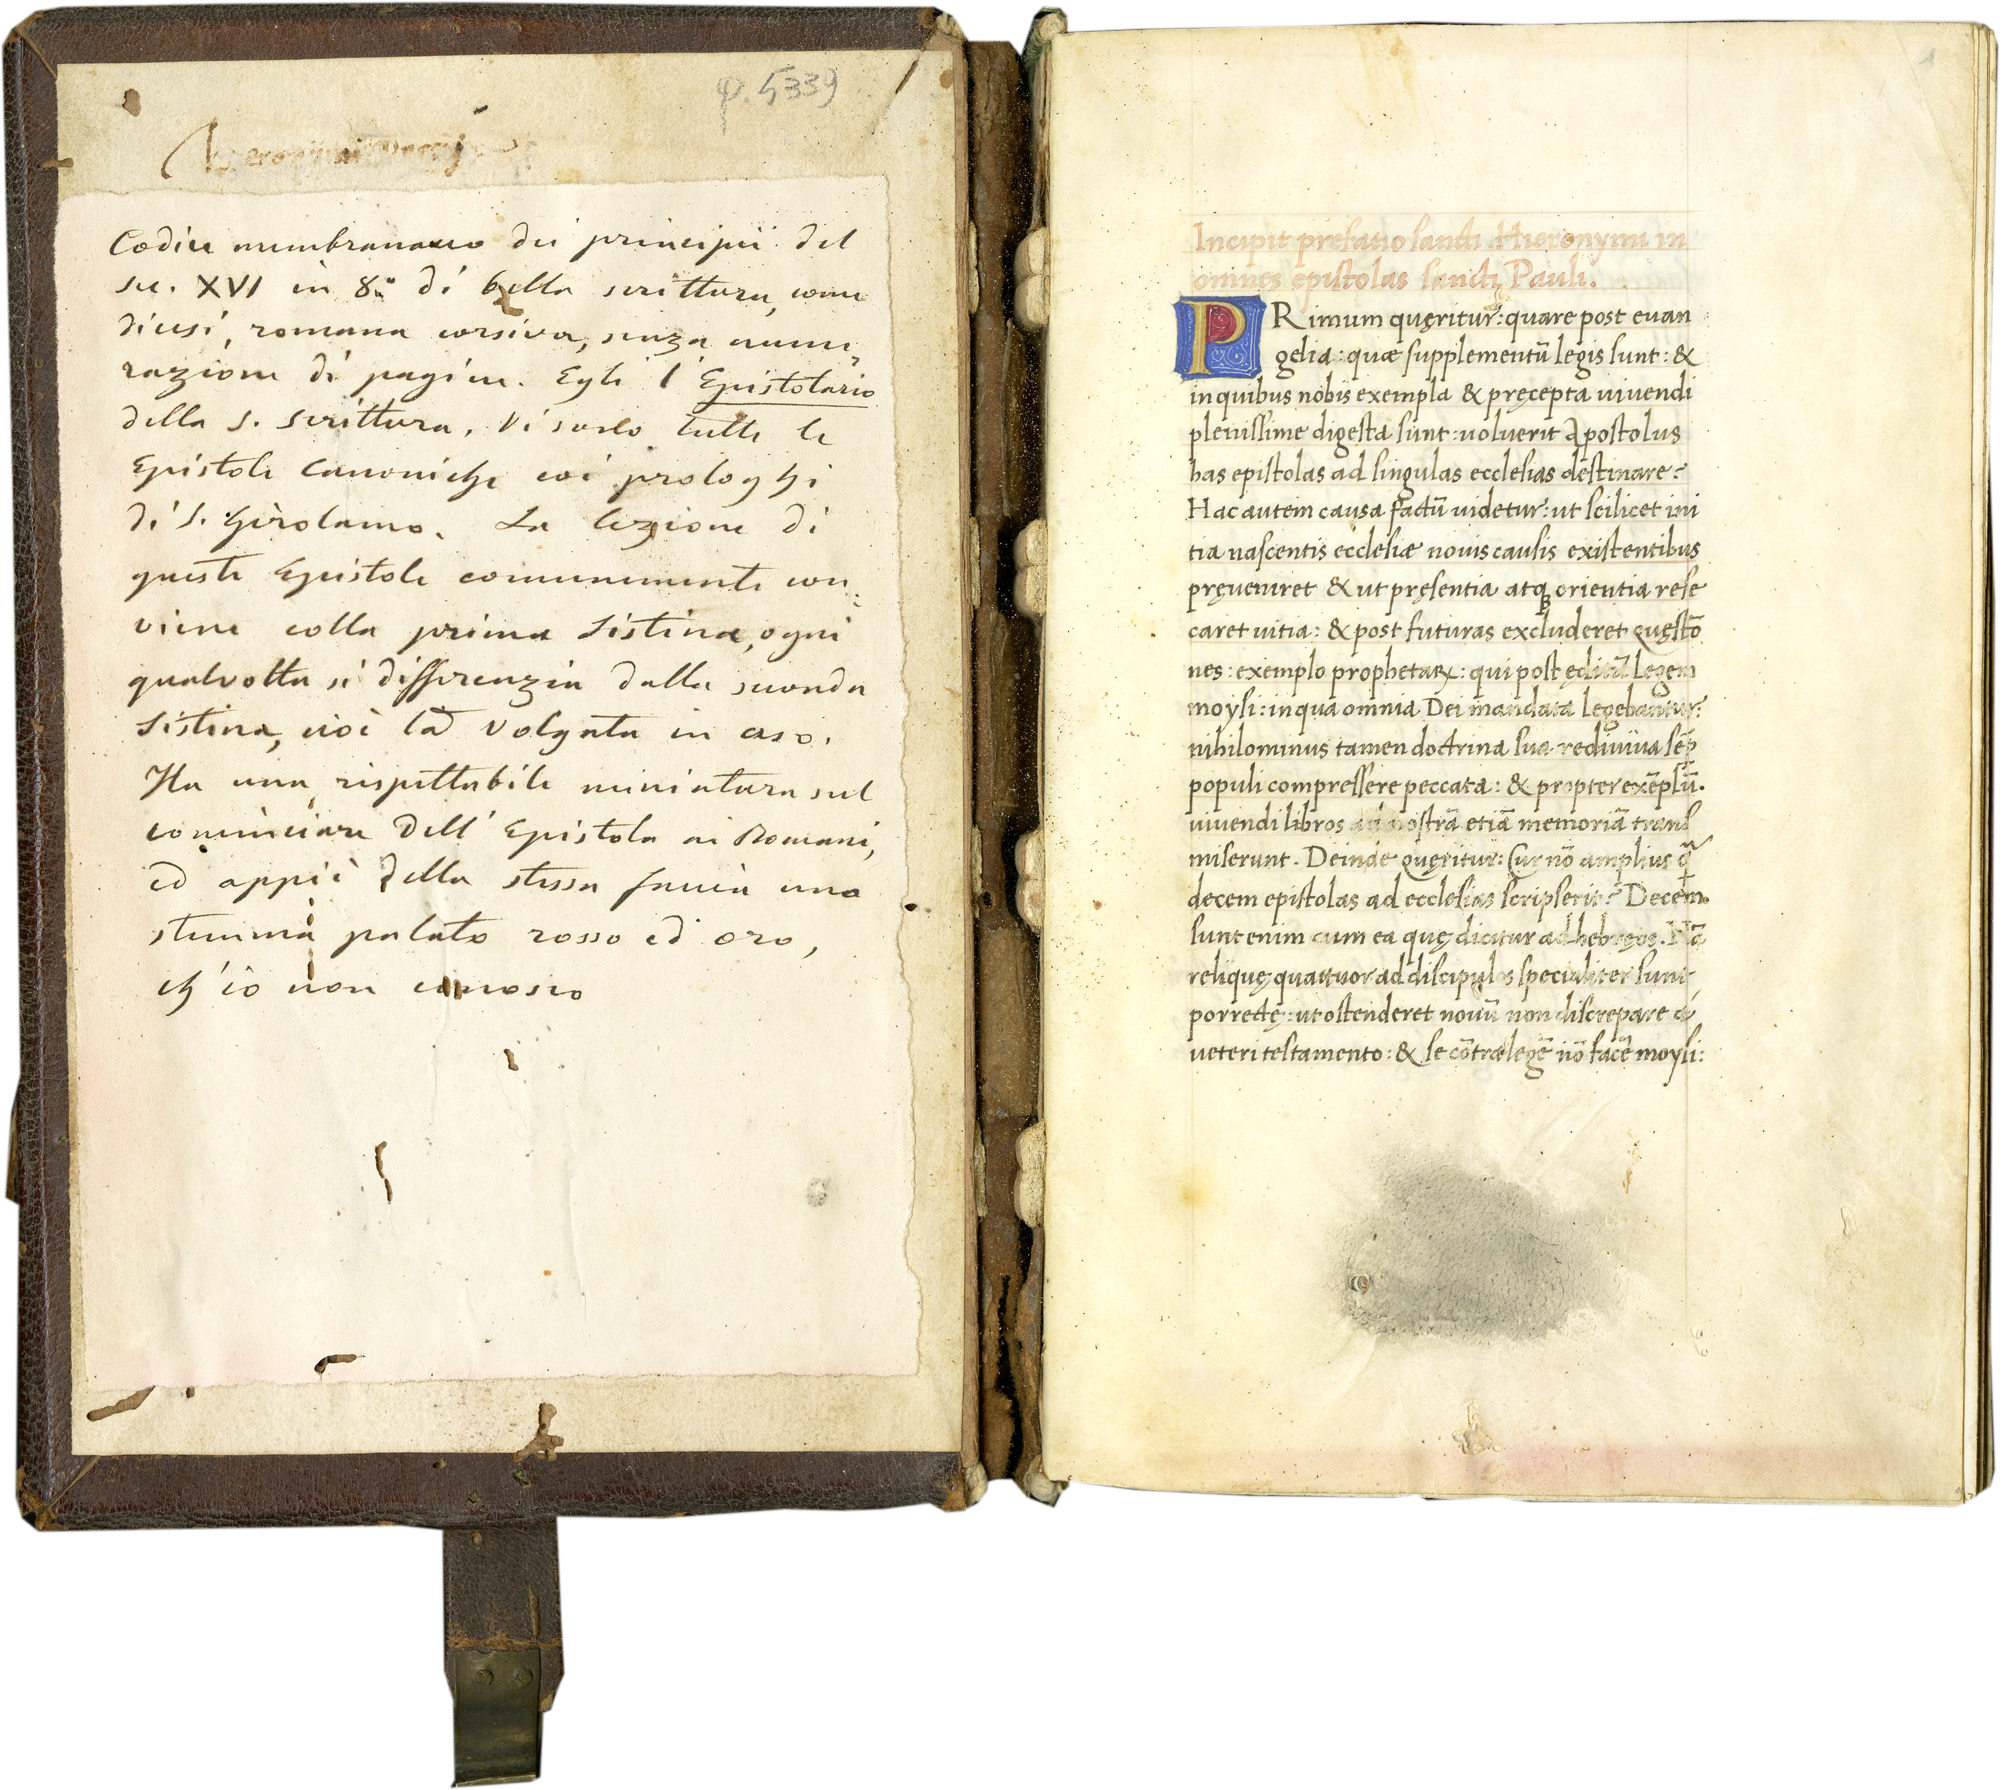 φ. 5339
Hieronimi
Codice membranaceo dei principii del
sec. XVI in 8.° di bella scrittura, come
dicesi, romana corsiva, senza nume,
razione di pagine. Egli è l'Epistolario
della S. Scrittura. Vi sono tutte le
Epistole Canoniche coi prologhi
di S. Girolamo. La lezione di
queste Epistole comunemente con:
viene colla prima Sistina, ogni
qualvolta si differenzia dalla seconda
Sistina, cioè la Volgata in uso.
Ha una rispettabile miniatura sul
cominciare dell'Epistola ai Romani,
ed appiè della stessa faccia uno
stemma palato rosso ed oro,
ch'io non conosco
1
Incipit prefatio sancti Hieronymi in
omnes epistolas sancti Pauli.
PRimum quęritur: quare post euan
gelia: quæ supplementū legis sunt: &
in quibus nobis exempla & pręcepta uiuendi
plenissime digesta sunt: uoluerit Apostolus
has epistolas ad singulas ecclesias destinare?
Hac autem causa factū uidetur: ut scilicet ini
tia nascentis ecclesiæ nouis causis existentibus
pręueniret & ut pręsentia atqꝫ orientia rese
caret uitia: & post futuras excluderet quęstō
nes: exemplo prophetaꝝ: qui post ęditā Legem
moysi: in qua omnia Dei mandata Legebantur:
nihilominus tamen doctrina sua rediuiua sēp
populi compressere peccata: & propter exēplū.
uiuendi libros ad nostrā etiā memoriā trans
miserunt. Deinde quęritur: Cur nō amplius q̄
decem epistolas ad ecclesias scripserit? Decem.
sunt enim cum ea quę dicitur ad hebręos. Nā
reliquę quattuor ad discipulos specialiter sunt
porrectę: ut ostenderet nouū non discrepare á
ueteri testamento: & se cōtra legē nō facē moysi: